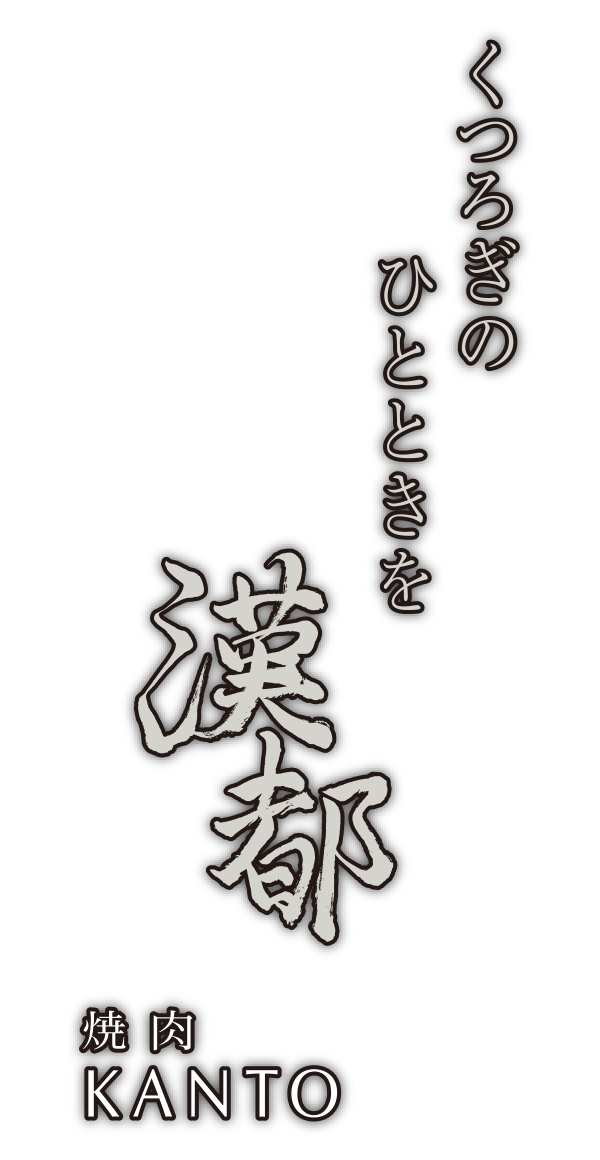 くつろぎの
ひとときを
漢都
焼肉
KANTO